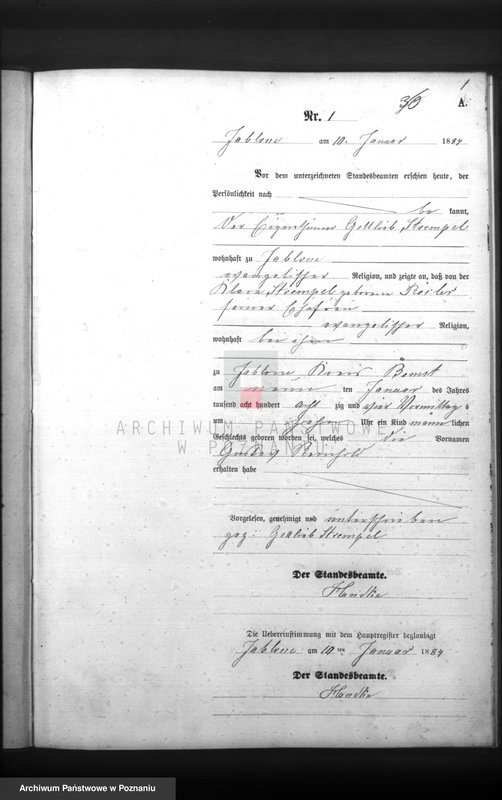 1
30
A.
Nr. 1
Jablone am 10. Januar 1884
Vor dem unterzeichneten Standesbeamten erschien heute, der
Persönlichkeit nach
be kannt,
der Eigenthümer Gottlieb Strempel
wohnhaft zu Jablone
evangelischer Religion, und zeigte an, daß von der
Klara Strempel geborene Rösler
seiner Ehefrau
evangelischer Religion,
wohnhaft bei ihm
zu Jablone Kreis Bomst
am neun ten Januar des Jahres
tausend acht hundert acht zig und vier Vormittag s
um zehn Uhr ein Kind männ lichen
Geschlechts geboren worden sei, welches die Vornamen
Gustav Reinhold
erhalten habe
Vorgelesen, genehmigt und unterschrieben
gez: Gottlieb Strempel
Der Standesbeamte.
Handke
Die Uebereinstimmung mit dem Hauptregister beglaubigt
Jablone am 10 ten Januar 1884
Der Standesbeamte.
Handke
ARCHIWUM PAŃSTWOWE
W POZNANIU
Archiwum Państwowe w Poznaniu